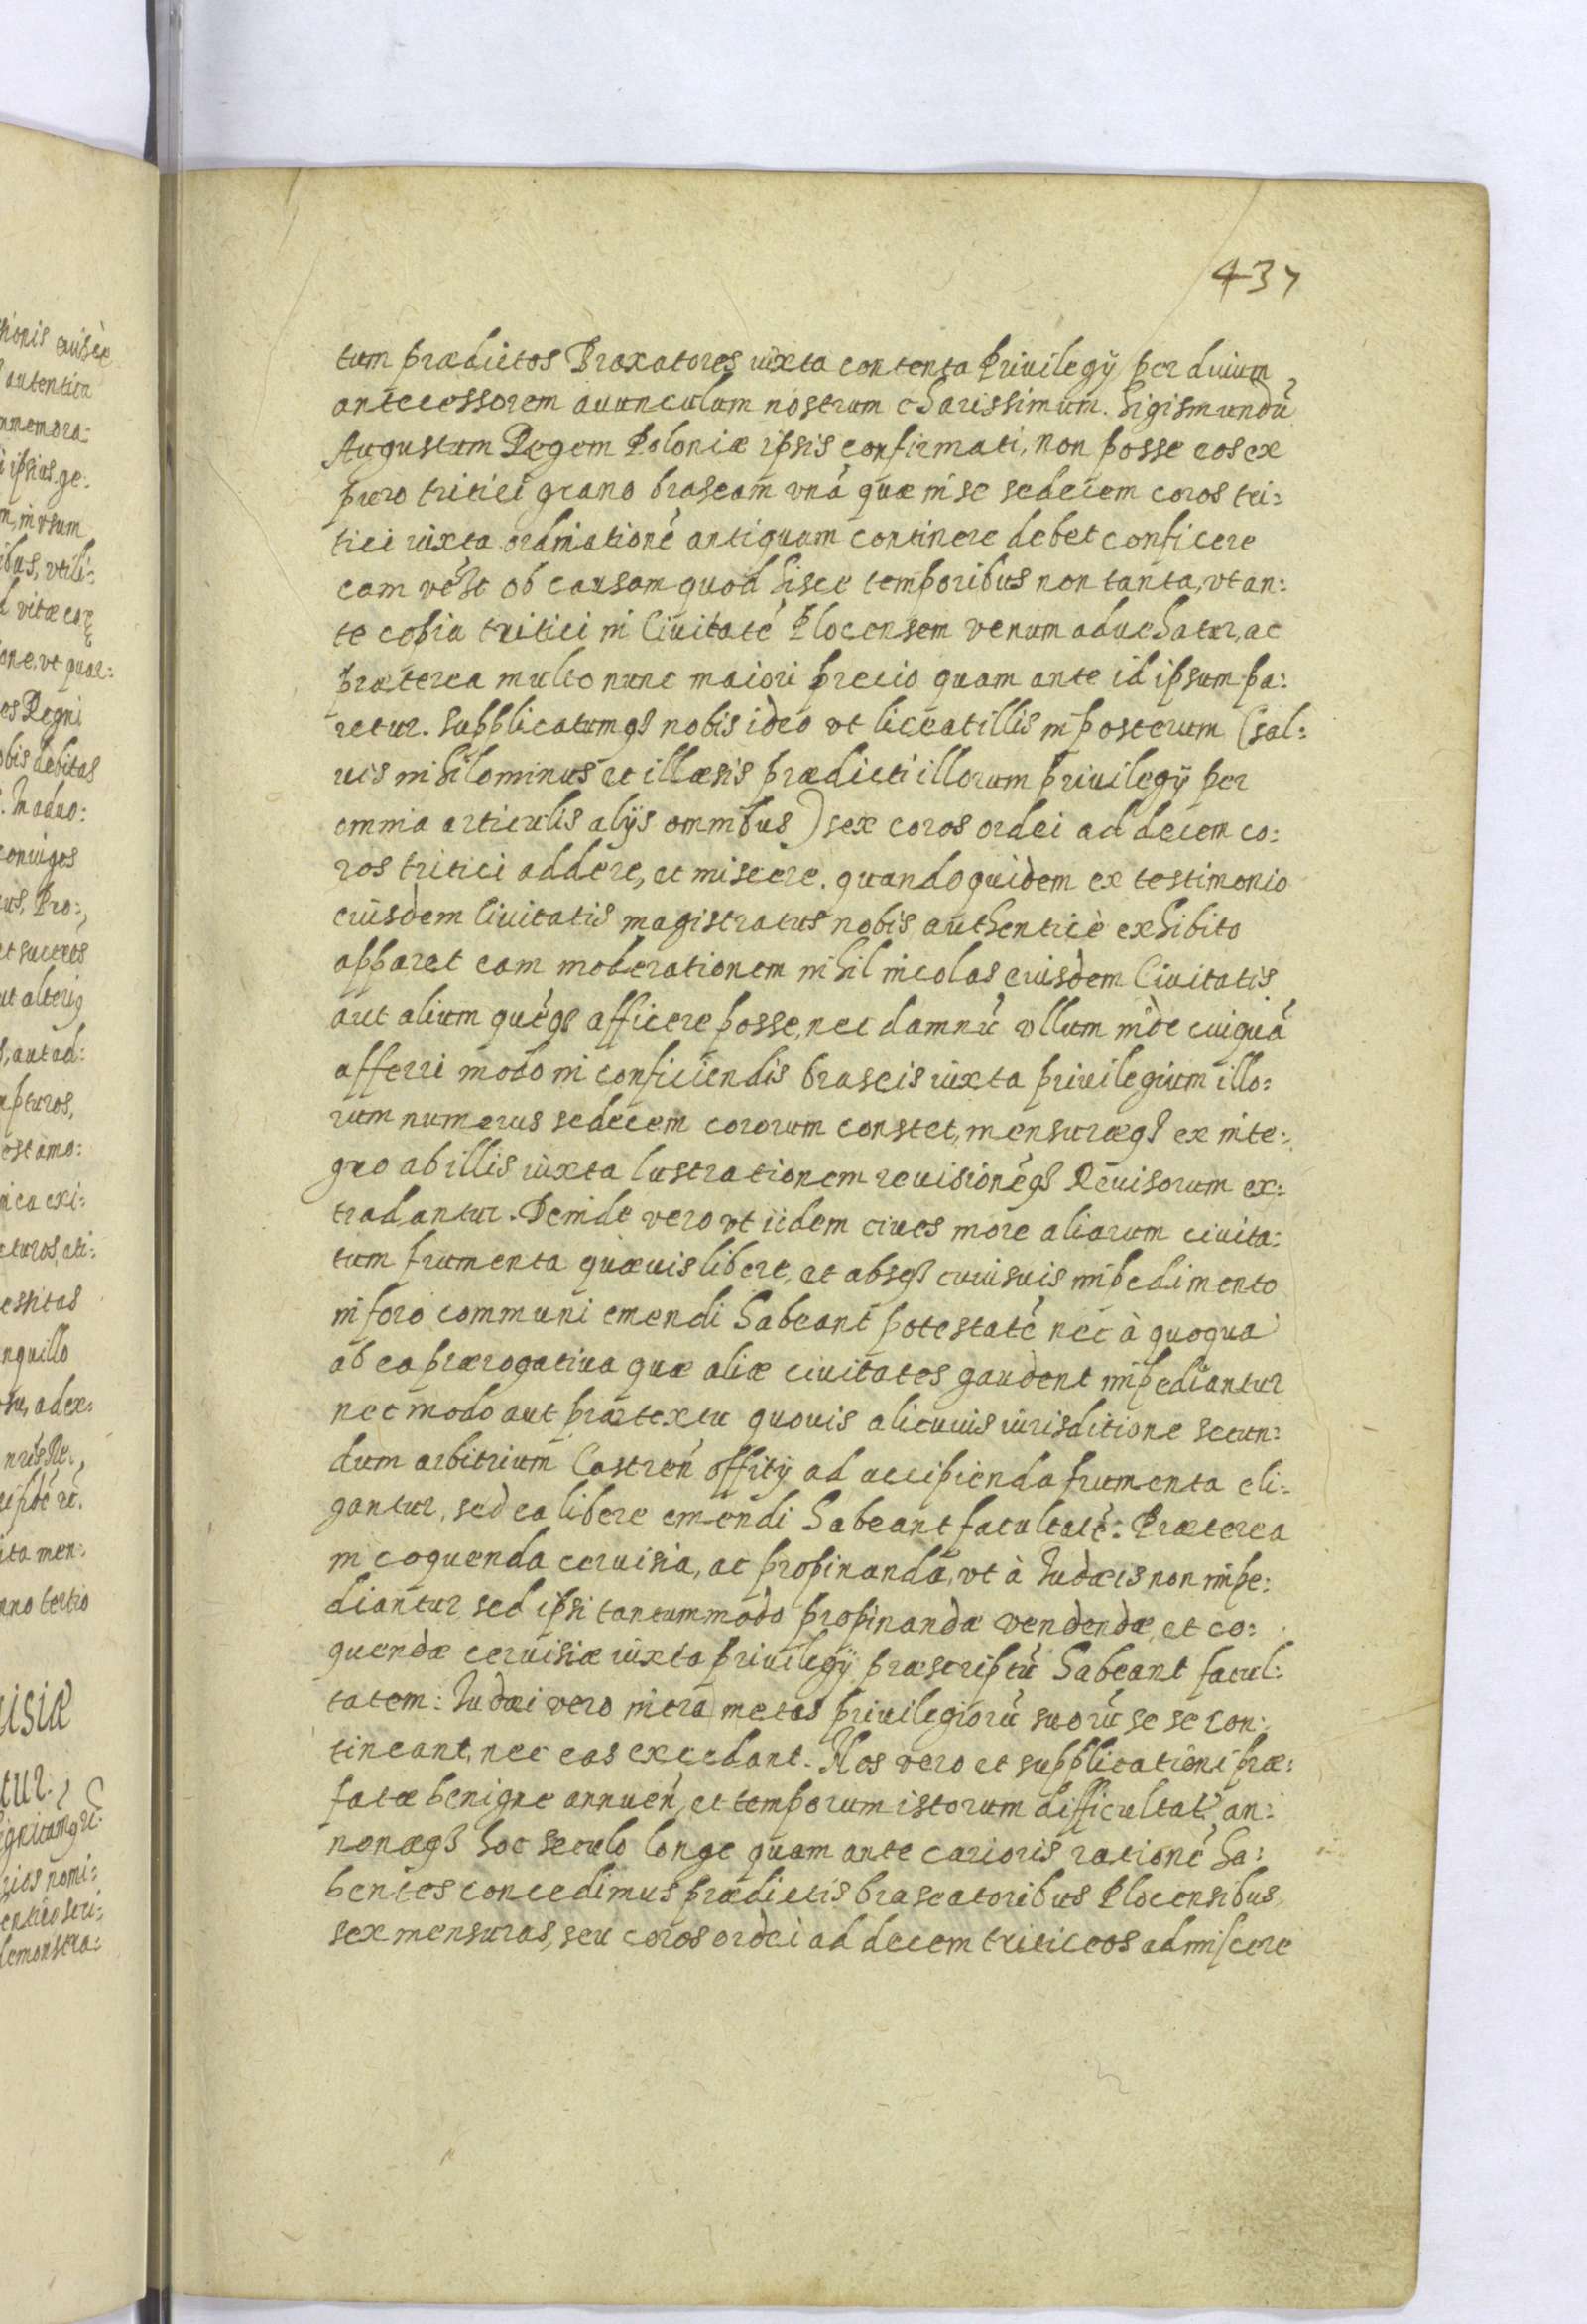 437
tum prædictos Braxatores iuxta contenta Priuilegÿ per diuum
antecessorem auunculum nostrum charissimum. Sigismundũ
Augustum Regem Poloniæ ipsis confirmati, non posse eos ex
puro tritici grano braseam vnã quæ in se sedecem coros tri:
tici iuxta ordinationẽ antiquam continere debet conficere
eam ob causam quod hisce temporibus non tanta, vt an:
te copia tritici in Ciuitatẽ Plocensem venum aduehatur, ac
præterea multo nunc maiori precio quam ante id ipsum pa:
retur. Supplicatumqȝ nobis ideo vt liceat illis in posterum (sal:
uis nihilominus et illæsis prædicti illorum priuilegÿ per
omnia articulis alÿs omnibus) sex coros ordei ad decem co:
ros tritici addere, et miscere. quandoquidem ex testimonio
eiusdem Ciuitatis magistratus nobis authenticè exhibito
apparet eam moderationem nihil incolas eiusdem Ciuitatis
aut alium quẽqȝ afficere posse, nec damnũ vllum inde cuiquã
afferri modo in conficiendis braseis iuxta priuilegium illo:
rum numerus sedecem cororum constet, mensuræqȝ ex inte:
gro ab illis iuxta lustrationem reuisionẽqȝ Reuisorum ex:
tradantur. Deinde vero vt iidem ciues more aliarum ciuita:
tum frumenta quæuis libere, et absqȝ cuiusuis impedimento
in foro communi emendi habeant potestatẽ nec à quoquã
ab ea prærogatiua quæ aliæ ciuitates gaudent impediantur
nec modo aut prætextu quouis alicuius iurisditione secun:
dum arbitrium Castreñ offitÿ ad accipienda frumenta eli:
gantur, sed ea libere emendi habeant facultatẽ. Præterea
in coquenda ceruisia, ac propinanda, vt à Iudæis non impe:
diantur sed ipsi tantummodo propinandæ vendendæ, et co:
quendæ ceruisiæ iuxta priuilegÿ præscriptũ habeant facul:
tatem: Iudæi vero intra metas priuilegiorũ suorũ se se con:
tineant, nec eas excedant. Nos vero et supplicationi præ:
fatæ benigne annueñ, et temporum istorum difficultatẽ, an:
nonæqȝ hoc seculo longe quam ante carioris rationẽ ha:
bentes concedimus prædictis braseatoribus Plocensibus
sex mensuras, seu coros ordei ad decem triticeos admiscere